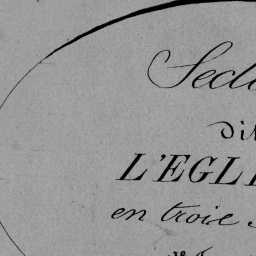 Sect
di
L'EGLI
en trois